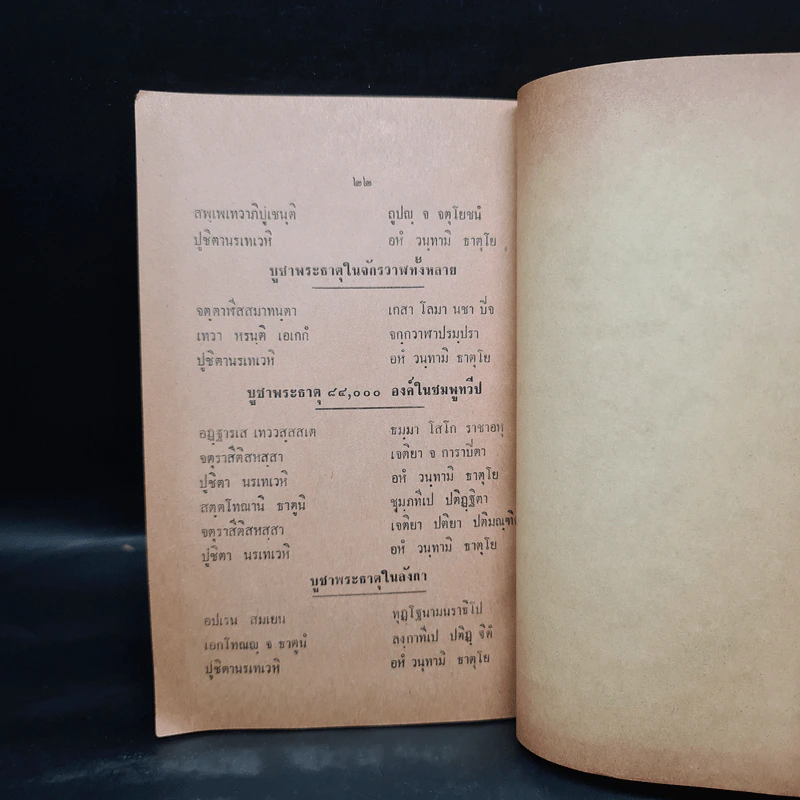 ๒๒
สพฺเพเทวาภิปูเชนฺติ ถูปญฺ จ จตุโยชนํ
ปูชิตานรเทเวหิ อหํ วนฺทามิ ธาตุโย
บูชาพระธาตุในจักรวาฬทั้งหลาย
จตฺตาฬีสสมาทนฺตา เกสา โลมา นขา ปีจ
เทวา หรนฺติ เอเกกํ จกฺกวาฬาปรมฺปรา
ปูชิตานรเทเวหิ อหํ วนฺทามิ ธาตุโย
บูชาพระธาตุ ๘๔,๐๐๐ องค์ในชมพูทวีป
อฏฺฐารเส เทววสฺสสเต ธมฺมา โสโก ราชาอหุ
จตุราสีติสหสฺสา เจติยา จ การาปีตา
ปูชิตา นรเทเวหิ อหํ วนฺทามิ ธาตุโย
สตฺตโทณานิ ธาตูนิ ชุมฺภทีเป ปติฏฺฐิตา
จตุราสีติสหสฺสา เจติยา ปติยา
ปูชิตา นรเทเวหิ อหํ วนฺทามิ ธาตุโย
บูชาพระธาตุในลังกา
อปเรน สมเยน ทุฏฺโฐนามนราธิโป
เอกโทณญฺ จ ธาตูนํ ลงฺกาทีเป ปติฏฺ ฐิตํ
ปูชิตานรเทเวหิ อหํ วนฺทามิ ธาตุโย